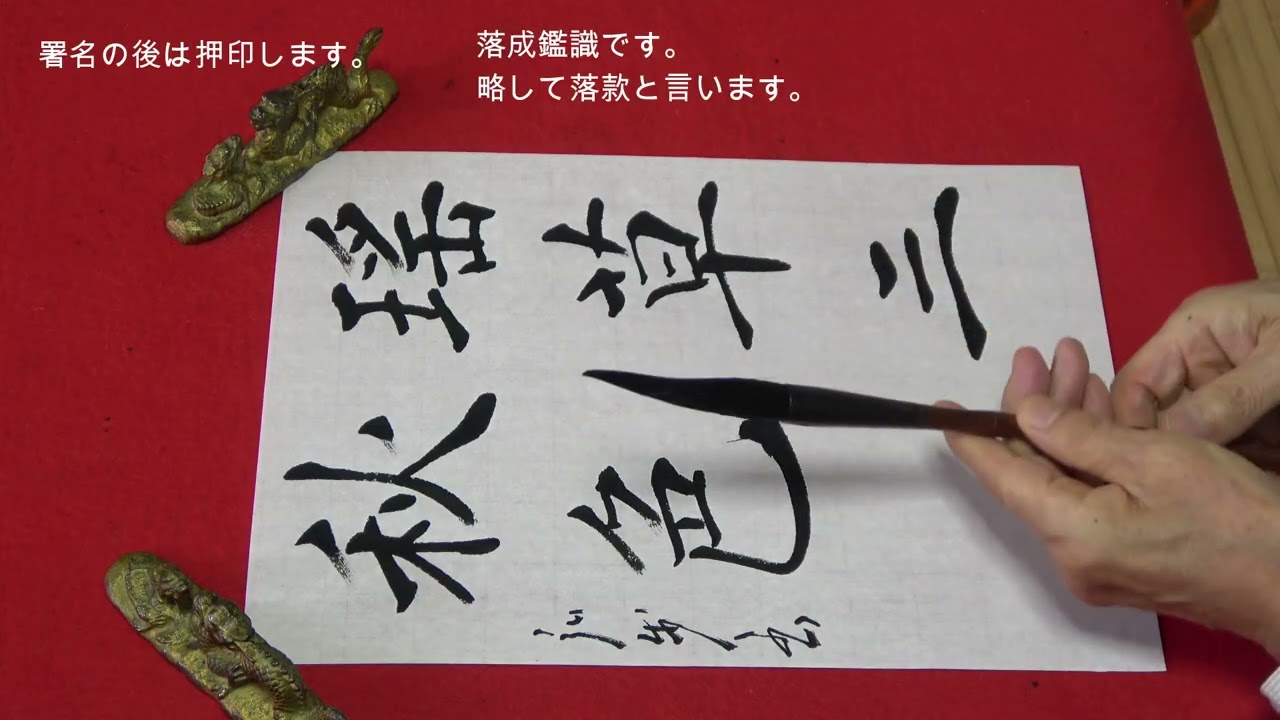 署名の後は押印します。
落成鑑識です。
略して落款と言います。
瑶草三
秋色